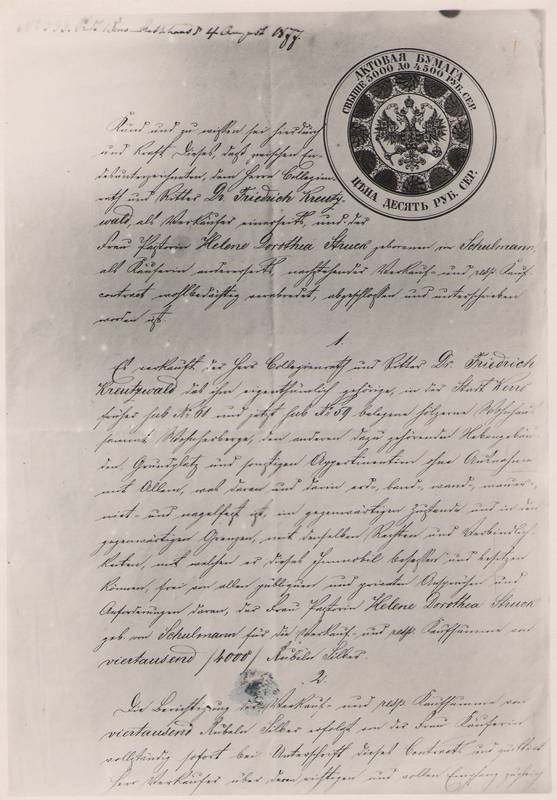 August 1877.
АКТОВАЯ БУМАГА
СВЫШЕ 3000 ДО 4500 РУБ. СЕР.
ЦѢНА ДЕСЯТЬ РУБ. СЕР.
Kund und zu wissen sei hierdurch
und kraft dieses, daß zwischen En-
desunterzeichneten, dem Herrn Collegien-
rath und Ritter Dr. Friedrich Kreutz-
wald, als Verkäufer einerseits, und der
Frau Pastorin Helene Dorothea Struck geborenen von Schulmann,
als Käuferin andererseits, nachstehender Verkauf- und resp. Kauf-
contract wohlbedächtig verabredet, abgeschlossen und unterschrieben
worden ist.
1.
Es verkauft der Herr Collegienrath und Ritter Dr. Friedrich
Kreutzwald das ihm eigenthümlich gehörige, in der Stadt Werro
früher sub № 61 und jetzt sub № 59 belegene hölzerne Wohnhaus
sammt Wohnherberge, den anderen dazu gehörenden Nebengebäu-
den, Grundplatz und sonstigen Appertinentien ohne Ausnahme
mit Allem, was daran und darin erd-, band-, wand-, mauer-,
niet- und nagelfest ist, im gegenwärtigen Zustande und in den
gegenwärtigen Grenzen, mit denselben Rechten und Verbindlich-
keiten, mit welchen er dieses Immobil besessen und besitzen
können, frei von allen publiquen und privaten Ansprüchen und
Anforderungen daran, der Frau Pastorin Helene Dorothea Struck
geb. von Schulmann für die Verkauf- und resp. Kaufsumme von
viertausend /4000/ Rubeln Silber.
2.
Die Berichtigung der Verkauf- und resp. Kaufsumme von
viertausend Rubeln Silber erfolgt von der Frau Käuferin
vollständig sofort bei Unterschrift dieses Contracts und quittirt
Herr Verkäufer über deren richtigen und vollen Empfang